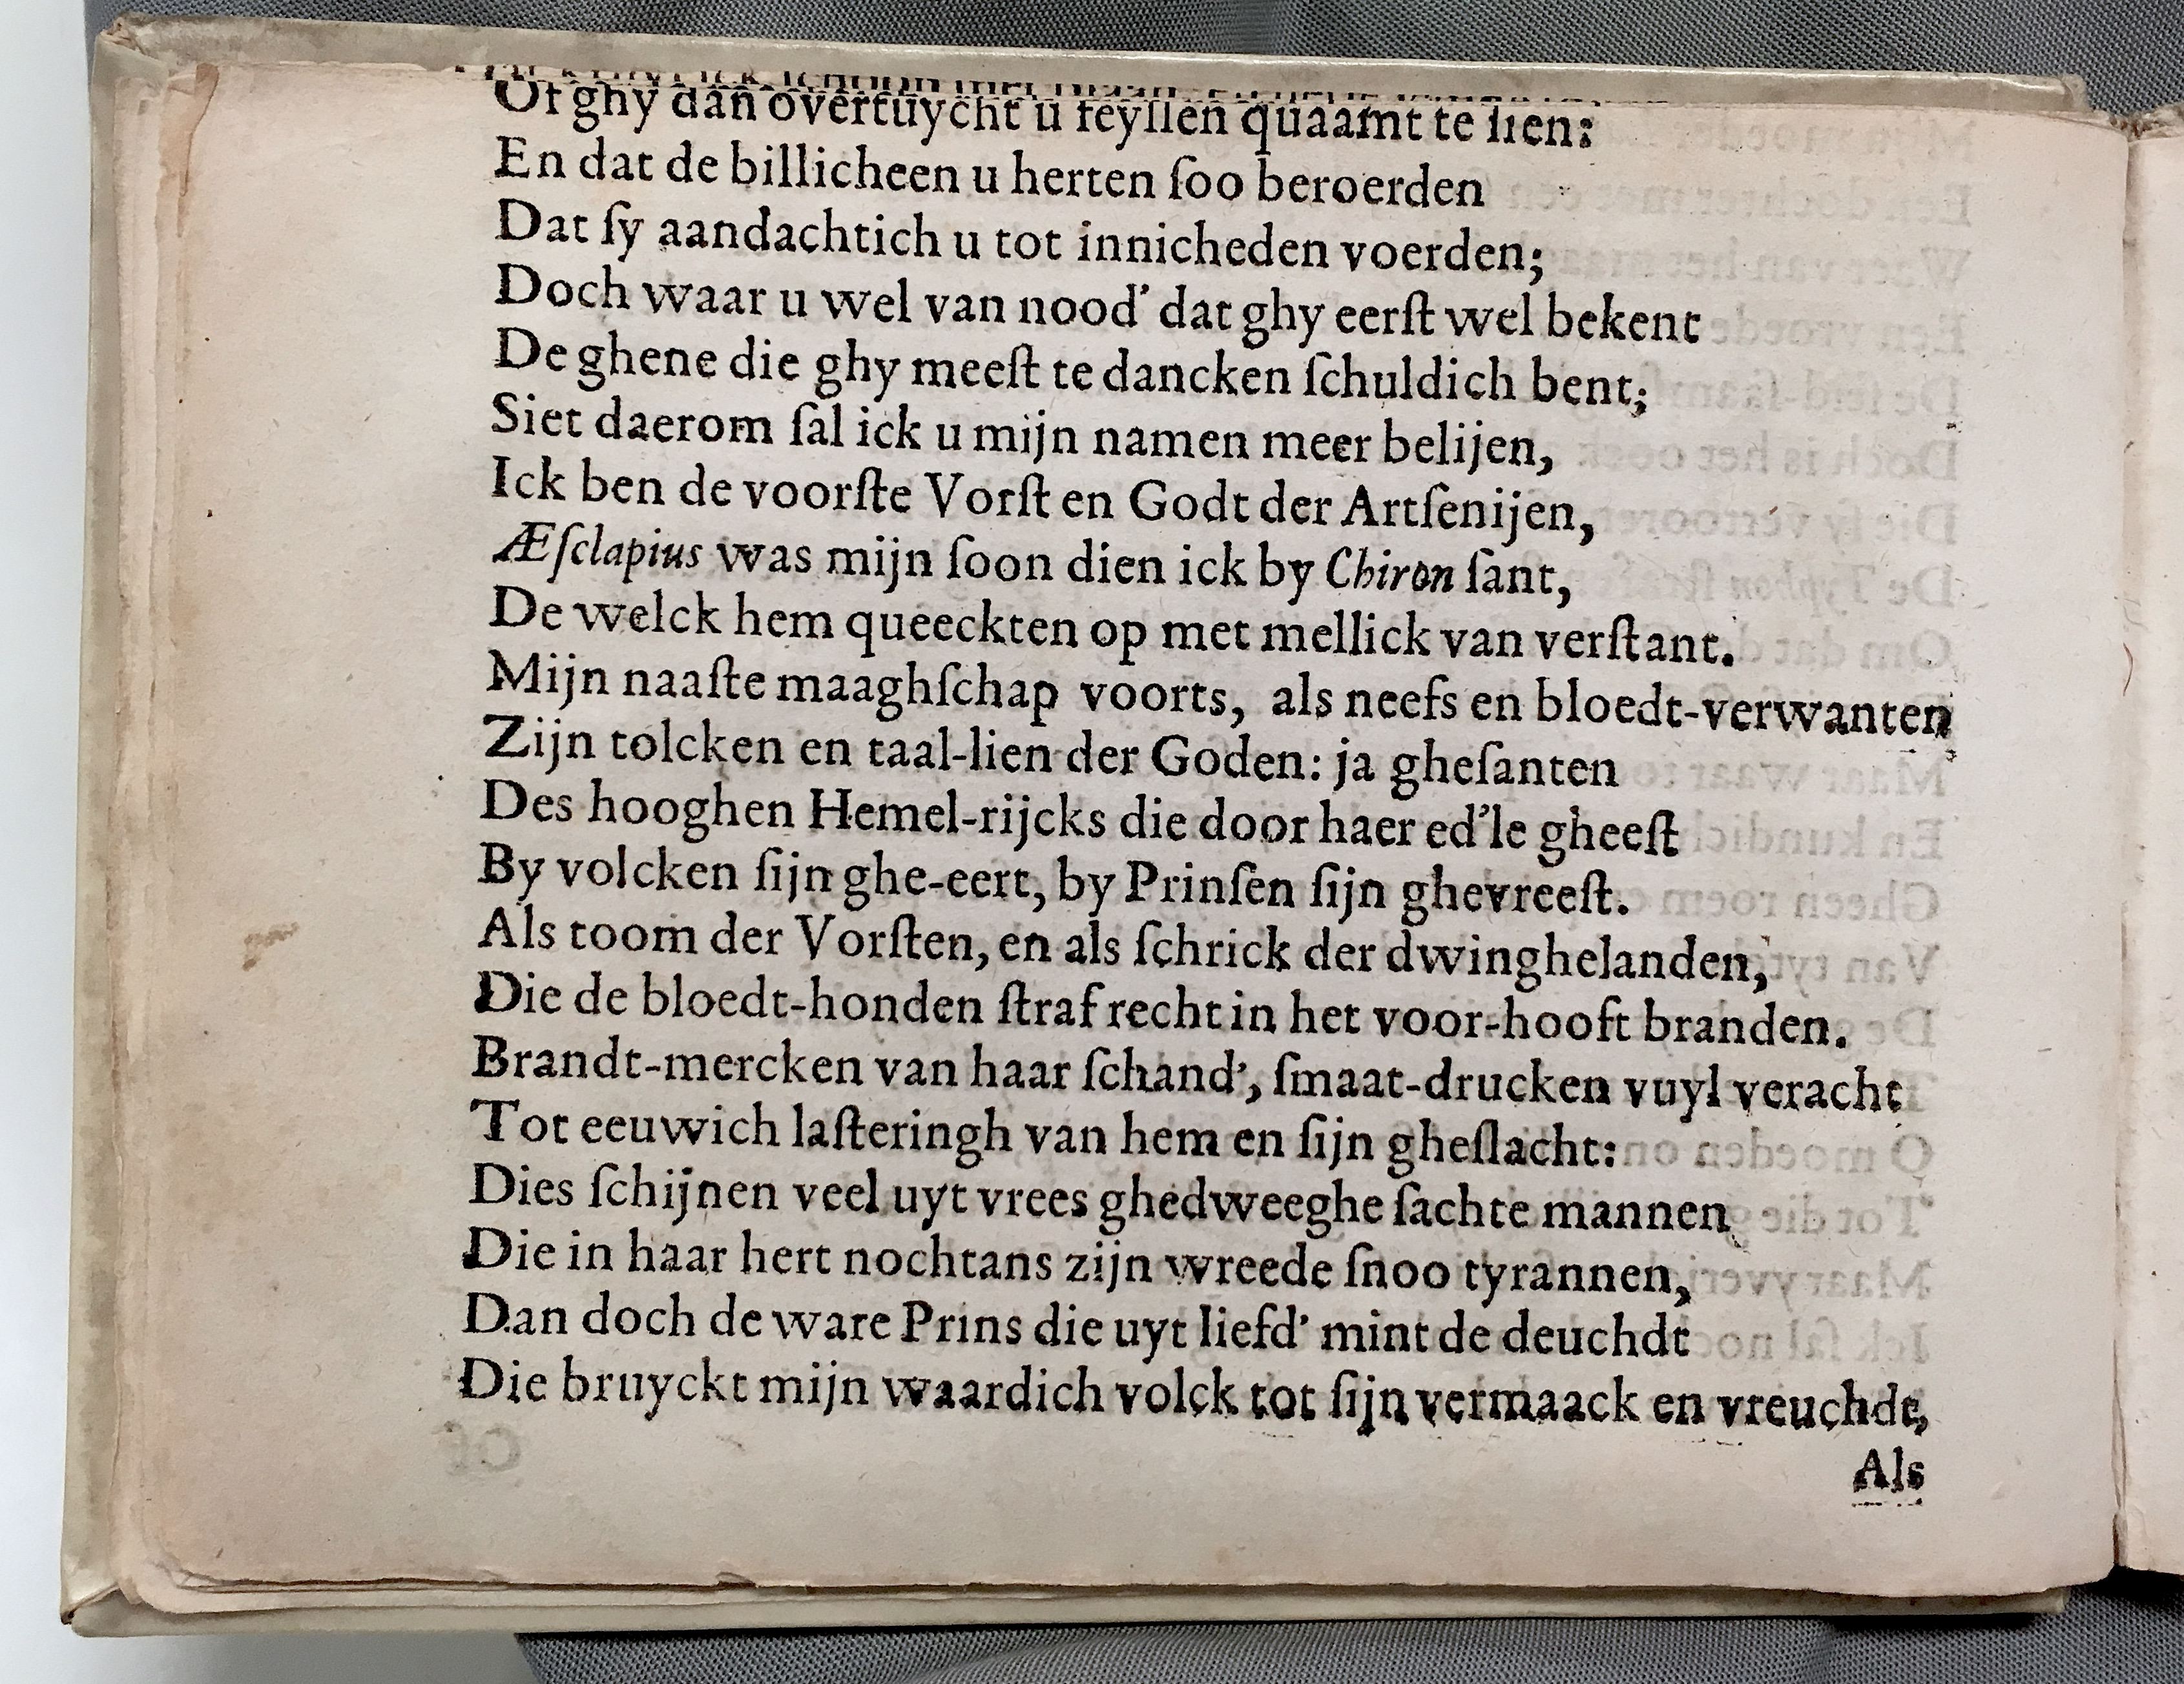 Of ghy dan overtuycht u feyllen quaamt te ſien:
En dat de billicheen u herten ſoo beroerden
Dat ſy aandachtich u tot innicheden voerden;
Doch waar u wel van nood' dat ghy eerſt wel bekent
De ghene die ghy meeſt te dancken ſchuldich bent;
Siet daerom ſal ick u mijn namen meer belijen,
Ick ben de voorſte Vorſt en Godt der Artſenijen,
Æſclapius was mijn ſoon dien ick by Chiron ſant,
De welck hem queeckten op met mellick van verſtant.
Mijn naaſte maaghſchap voorts, als neefs en bloedt-verwanten
Zijn tolcken en taal-lien der Goden: ja gheſanten
Des hooghen Hemel-rijcks die door haer ed'le gheeſt
By volcken ſijn ghe-eert, by Prinſen ſijn ghevreeſt.
Als toom der Vorſten, en als ſchrick der dwinghelanden,
Die de bloedt-honden ſtraf recht in het voor-hooft branden.
Brandt-mercken van haar ſchand', ſmaat-drucken vuyl veracht
Tot eeuwich laſteringh van hem en ſijn gheſlacht:
Dies ſchijnen veel uyt vrees ghedweeghe ſachte mannen
Die in haar hert nochtans zijn wreede ſnoo tyrannen,
Dan doch de ware Prins die uyt liefd' mint de deuchdt
Die bruyckt mijn waardich volck tot ſijn vermaack en vreuchdt,
Als